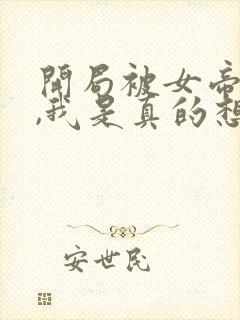 開局被女帝
,我是真的想
安世民